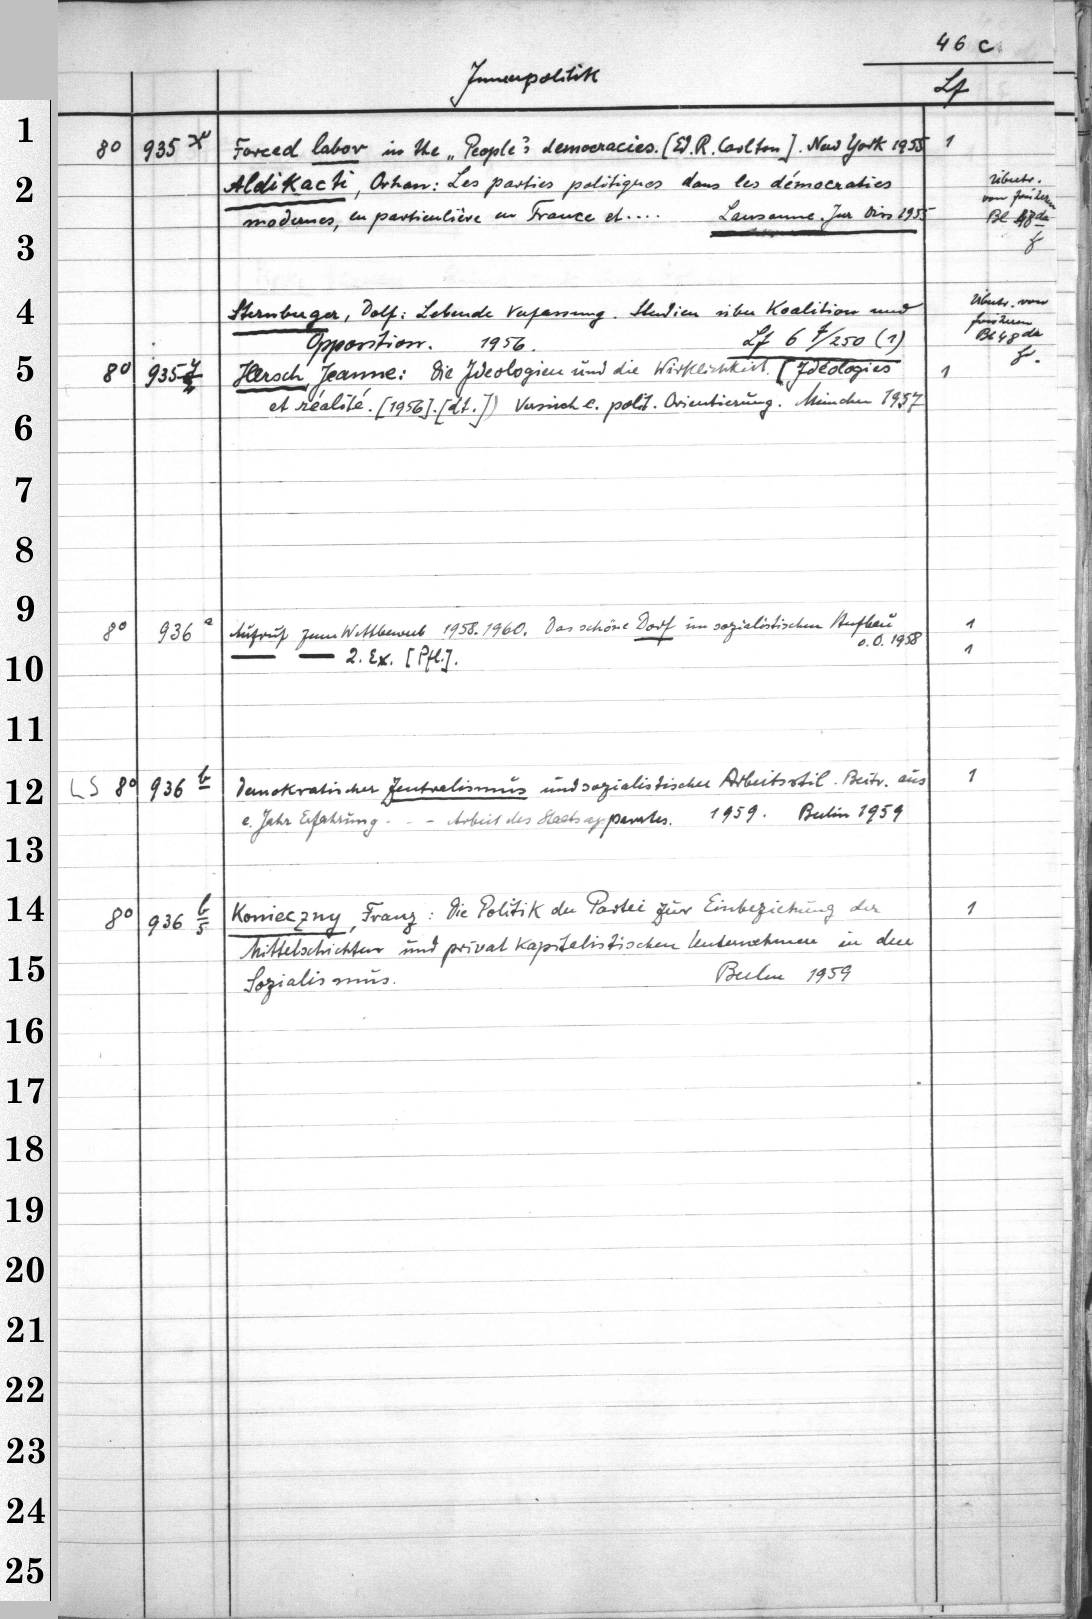 46 c
Innenpolitik
Lf
1
8° 935 x Forced labor in the „People's democracies. [Ed. R. Carlton]. New York 1955 1
2
Aldikacti, Orhan: Les parties politiques dans les démocraties
Übertr.
von früheren
modernes, en particulière en France et.... Lausanne. Jur Diss 1955
Bl 48 da
3
4
Sternberger, Dolf: Lebende Verfassung. Studien über Koalition und
Übertr. von
früheren
Bl 48 da
Opposition. 1956. Lf 6 7/250 (1)
5
8° 935 y Hersch, Jeanne: Die Ideologien und die Wirklichkeit. [Idéologies 1
et réalité. [1956]. [dt.]) Versuch e. polit. Orientierung. München 1957
6
7
8
9
8° 936 a Aufruf zum Wettbewerb 1958.1960. Das schöne Dorf im sozialistischen Aufbau 1
o.O. 1958
— — 2. Ex. [Pfl.]. 1
10
11
12
LS 8° 936 b Demokratischer Zentralismus und sozialistischer Arbeitsstil. Beitr. aus 1
e. Jahr Erfahrung - - - Arbeit des Staatsapparates. 1959. Berlin 1959
13
14
8° 936 b/5 Konieczny, Franz: Die Politik der Partei zur Einbeziehung der 1
Mittelschichten und privatkapitalistischen Unternehmen in den
15
Sozialismus. Berlin 1959
16
17
18
19
20
21
22
23
24
25